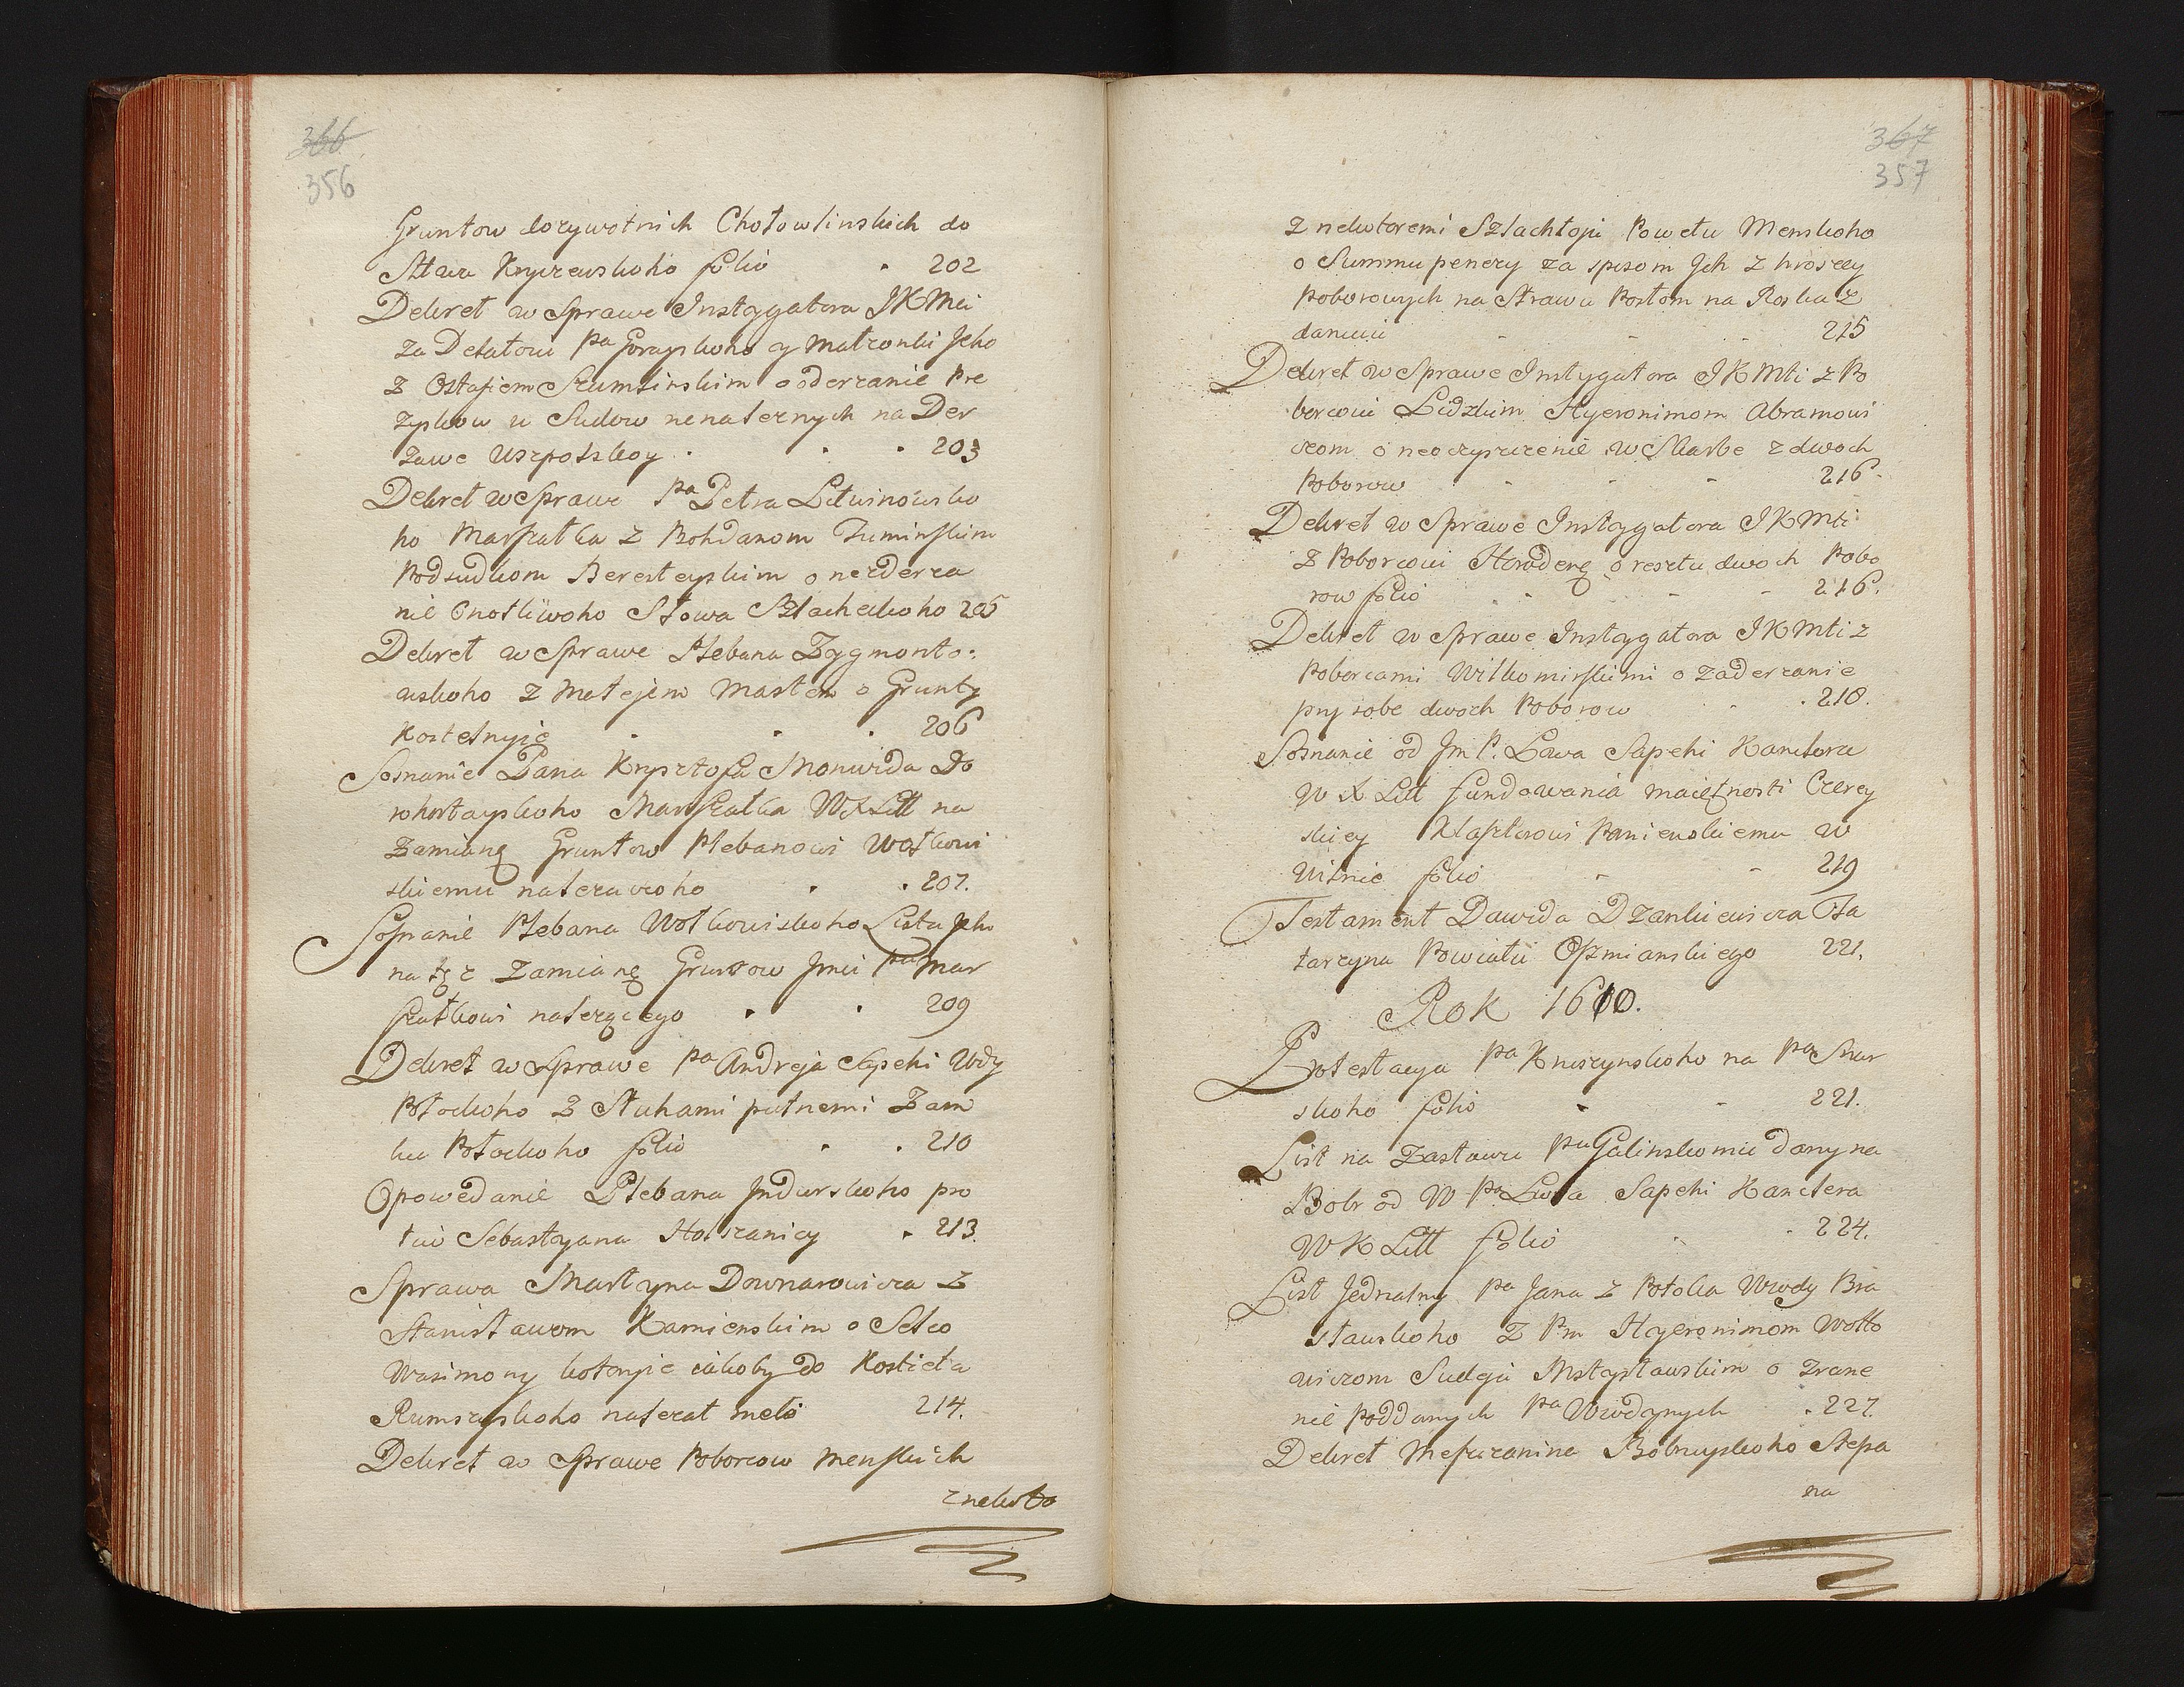 366
356
Gruntow dozywotnich Chotowlinskich do
Stawa Kryczewskoho folio 202
Dekret w Sprawe Instygatora JKMci
za Delatoru pa Gorayskoho y Matzonki Jeho
z Ostafiem Szumlinskim o oderzanie pre
zyskow u Sudow nenaleznych na Der
zawe Uszpolskoy 203
Dekret w Sprawe pa Petra Litwinowsko
ho Marszałka z Bohdanom Tuminskim
Podsudkom Beresteyskim o nezderza
nie Cnotliwoho Słowa Szlacheckoho 205
Dekret w Sprawe Plebana Zygmonto:
wskoho z Matejem Maslem o Grunty
Kostelnyie 206
Soznanie Pana Krysztofa Monwida Do
rohostayskoho Marszałka WXLitt na
Zamianę Gruntow Plebanowi Wołkowi
skiemu należaczoho 207.
Soznanie Plebana Wołkowiskoho Lista Jeho
na tęż Zamianę Gruntow Jmci Panu Mar
szałkowi należącego 209
Dekret w Sprawe pa Andreja Sapehi Wdy
Połockoho z Sluhami putnemi Zam
ku Połockoho folio 210
Opowedanie Plebana Indurskoho pro
tiw Sebastyana Holszanicy 213.
Sprawa Martyna Downarowicza z
Stanisławom Kamienskim o Selco
Wasimony kotoryie iakoby do Kostieła
Rumszyskoho należat meło 214.
Dekret w Sprawe Poborcow Menskich
z nekoto
367
357
z nekotoremi Szlachtoju Powetu Menskoho
o Summu penezy za spisom Jch z hroszey
Poborowych na Strawu Posłom na Roskaz
daniui 215
Dekret w Sprawe Instygatora JKMti z Po
borcoiu Lidzkim Hyeronimom Abramowi
czom o neoczyszczenie w Skarbe z dwoch
Poborow 216
Dekret w Sprawe Instygatora JKMti
z Poborcoiu Horodenę o resztu dwoch Pobo
row folio 216.
Dekret w Sprawe Instygatora JKMti z
Poborcami Wiłkomirskimi o zaderzanie
pry sobe dwoch Poborow 218.
Soznanie od Jm P. Lewa Sapehi Kanclera
W X Litt fundowania maiętnosti Czerey
skiey Klasztorowi Panienskiemu w
Wilnie folio 219
Testament Dawida Dzankiewicza Ta
tarzyna Powiatu Oszmianskiego 221.
Rok 1610.
Protestacya pa Kniszynskoho na pa Mar
skoho folio 221.
List na Zastawu pu Galinskomu dany na
Bobr od W pa Lwa Sapehi Kanclera
WKLitt folio 224.
List Jednalny pa Jana z Potoka Wwdy Bra
sławskoho z Pm Hyeronimom Wołło
wiczom Sudeju Mstysławskim o zrane
nie Poddanych pa Wwdynych 227.
Dekret Meszczanina Bobruyskoho Stepa
na